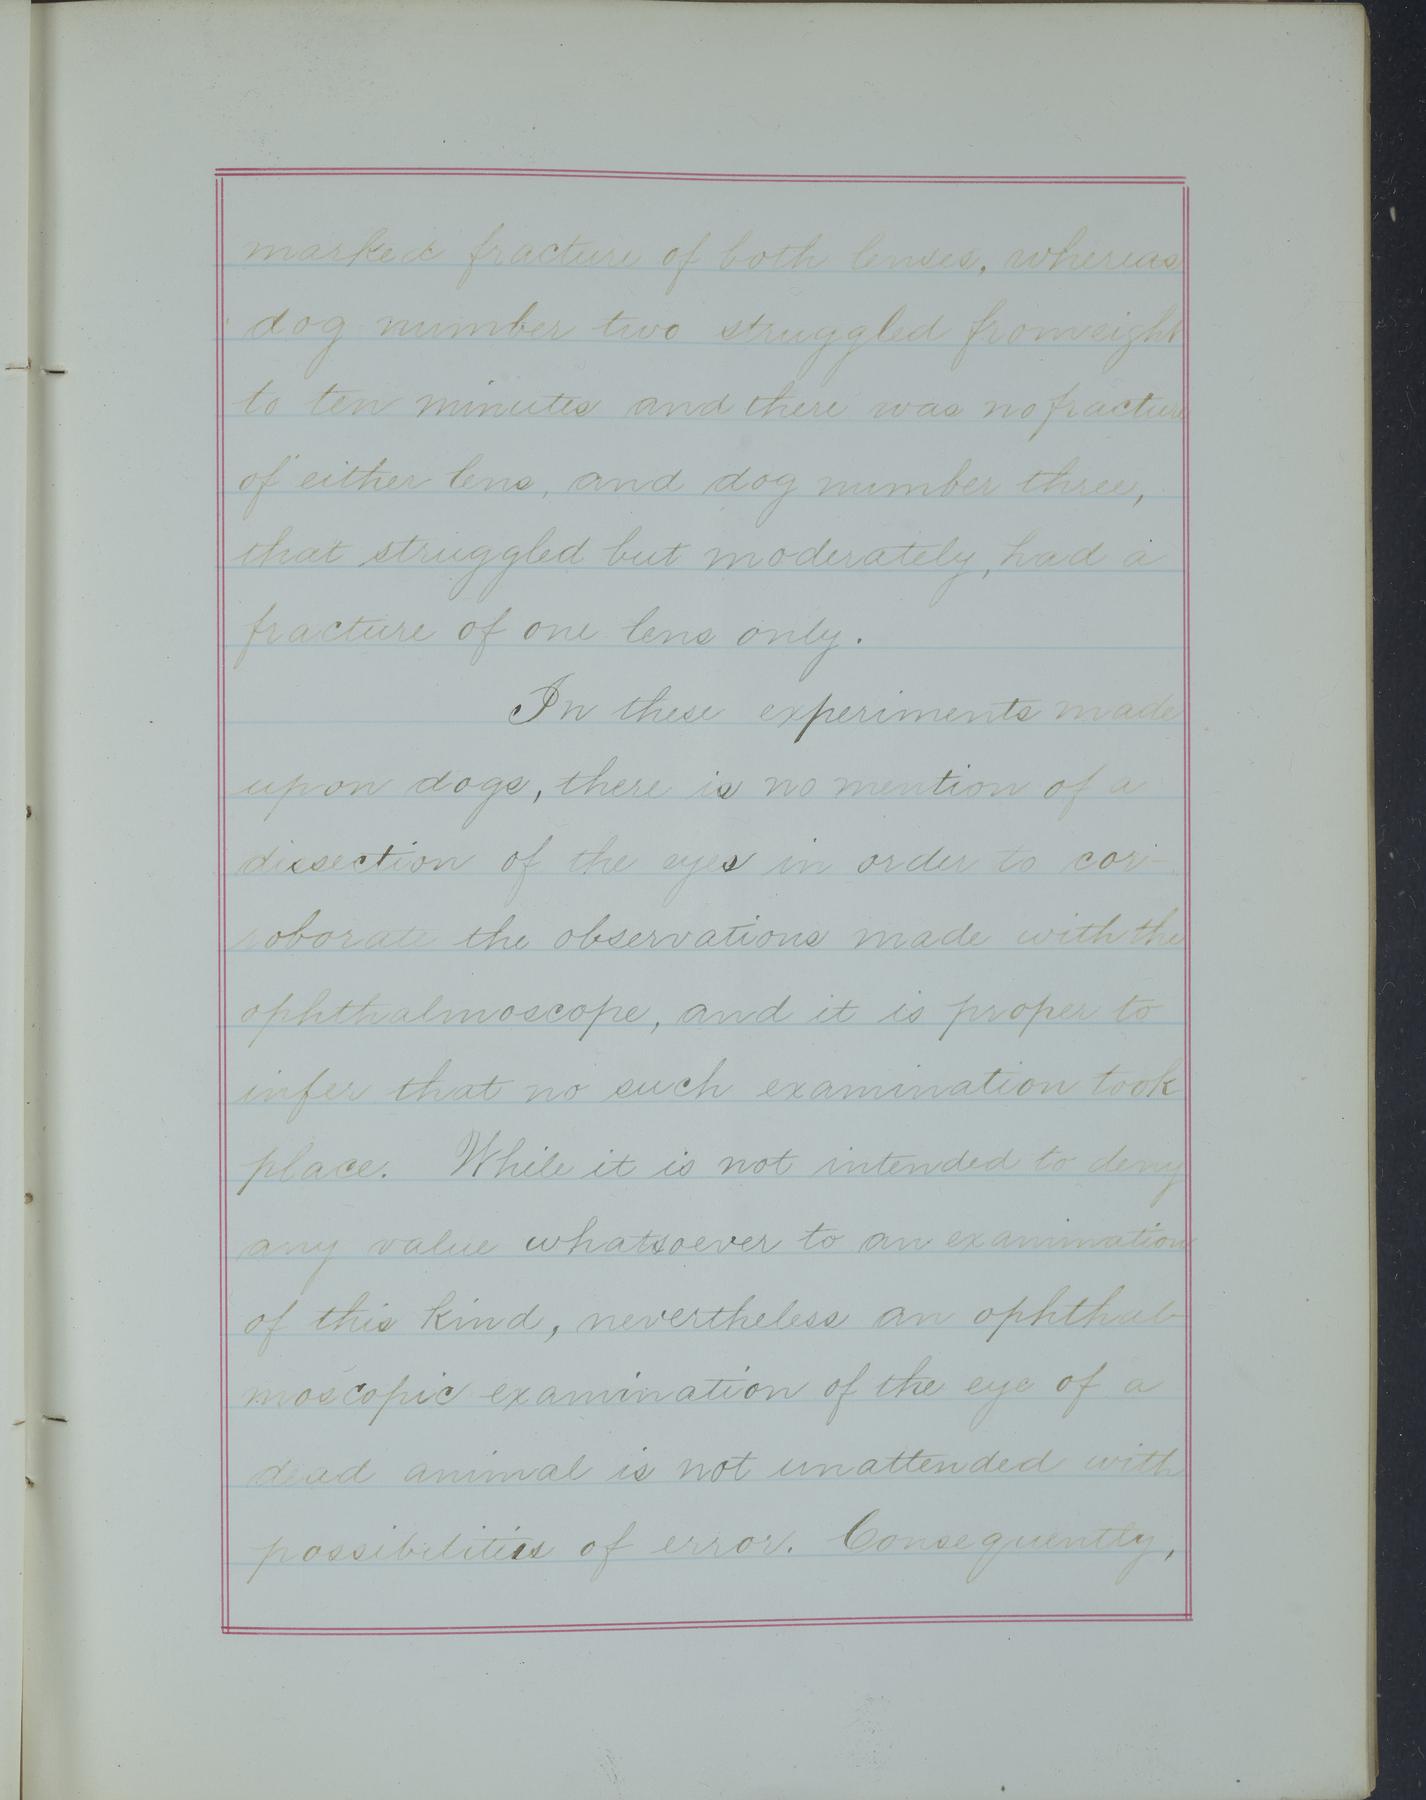 marked fracture of both lenses, whereas
dog number two struggled from eight
to ten minutes and there was no fracture
of either lens, and dog number three,
that struggled but moderately, had a
fracture of one lens only.
In these experiments made
upon dogs, there is no mention of a
dissection of the eyes in order to cor-
roborate the observations made with the
ophthalmoscope, and it is proper to
infer that no such examination took
place. While it is not intended to deny
any value whatsoever to an examination
of this kind, nevertheless an ophthal-
moscopic examination of the eye of a
dead animal is not unattended with
possibilities of error. Consequently,